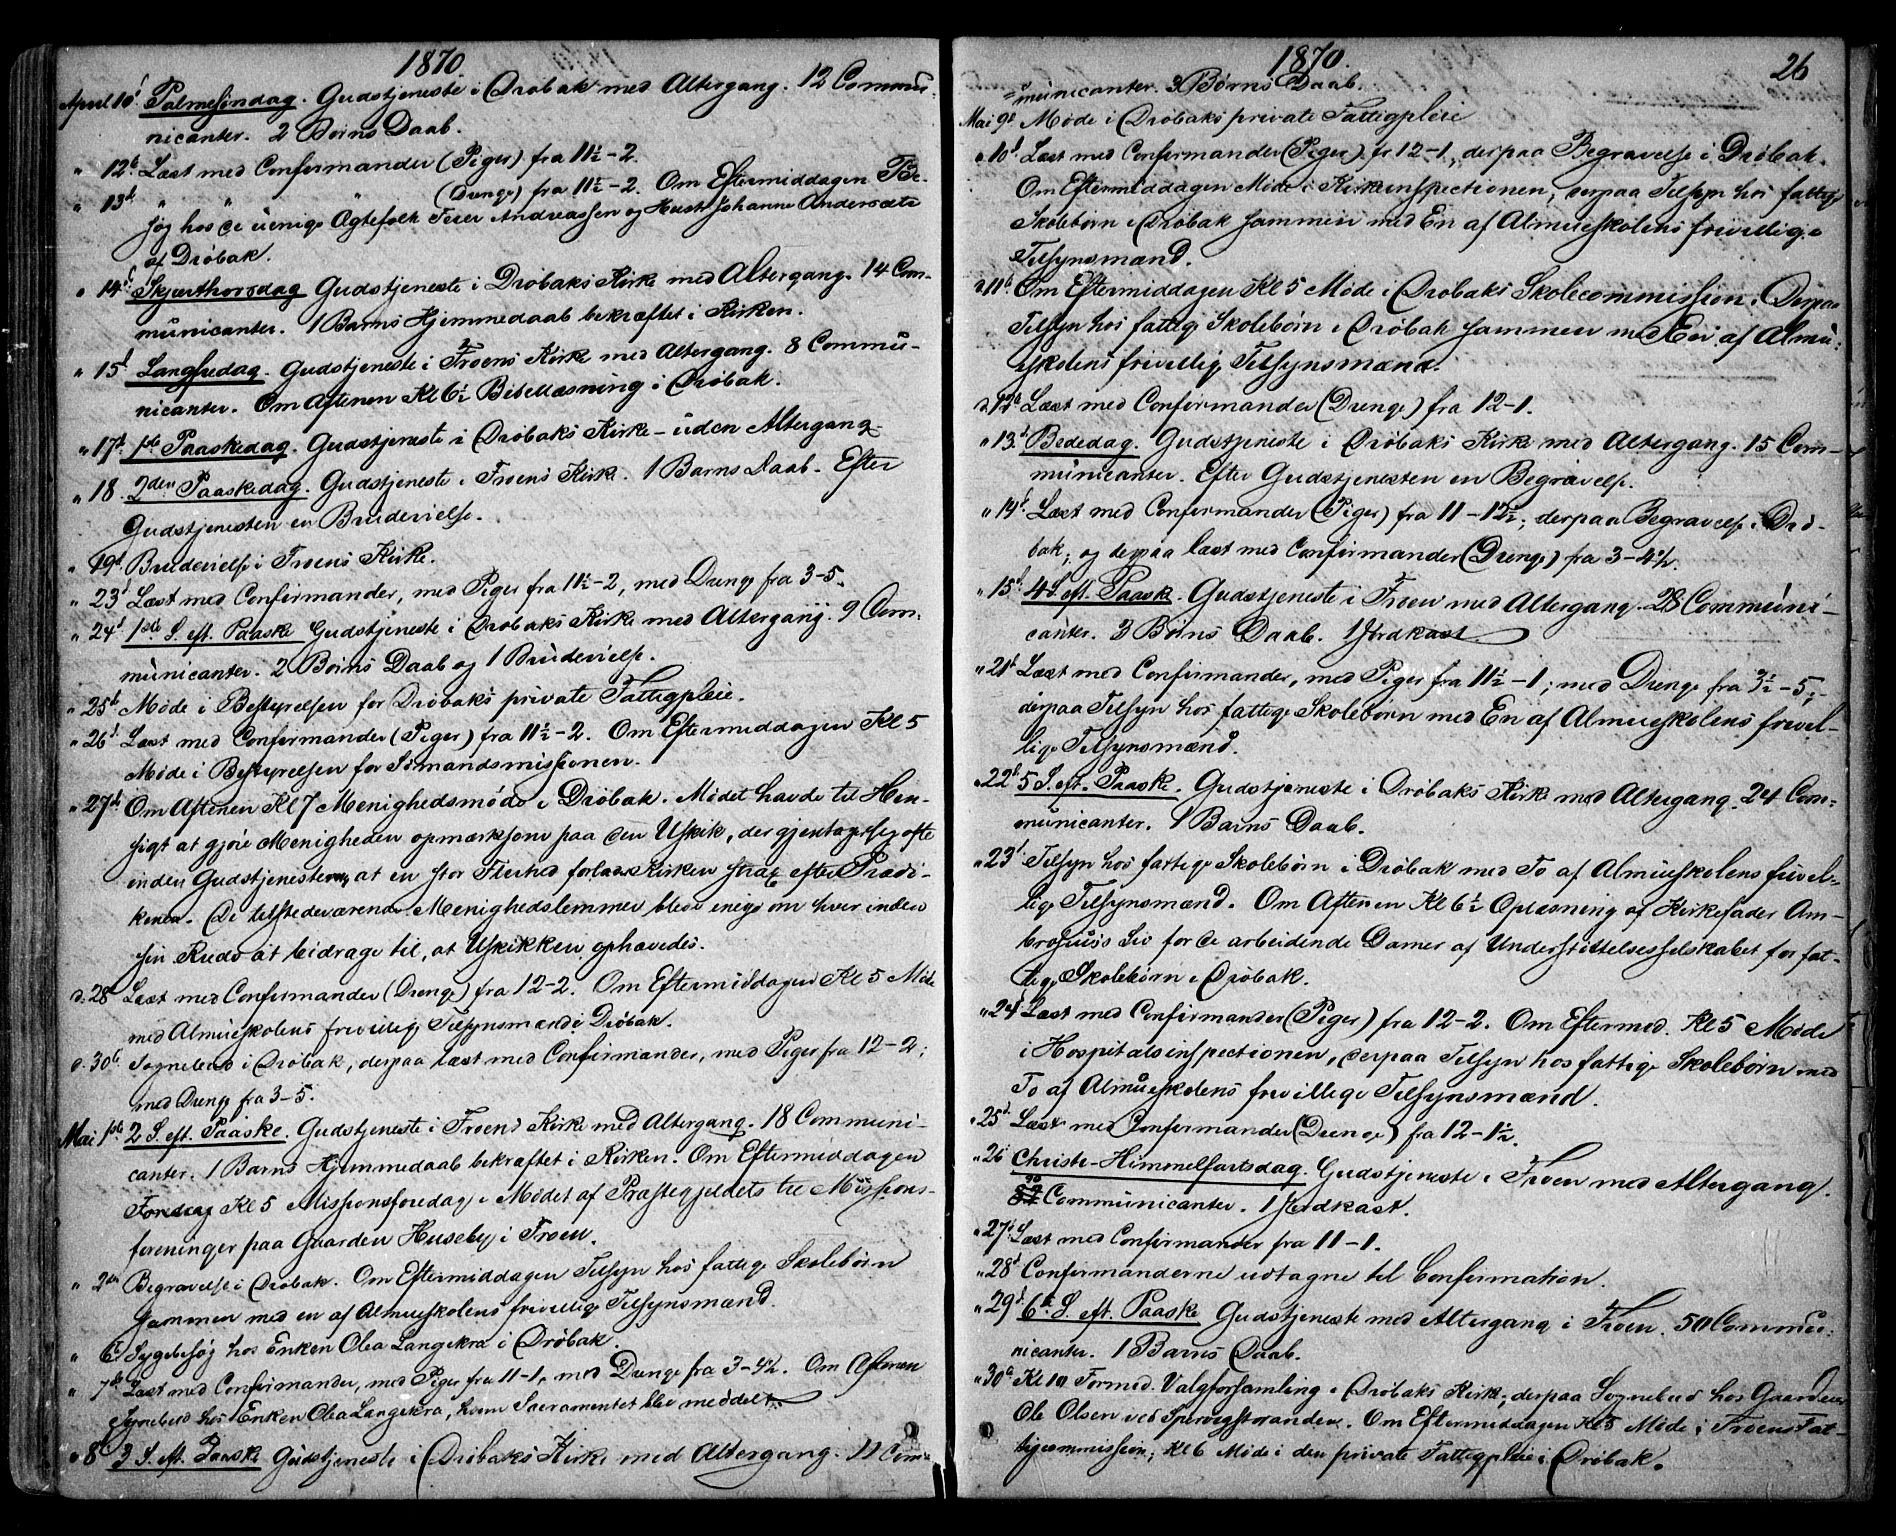 1870.
April 10d Palmesøndag. Gudstjeneste i Drøbak med Altergang. 12 Commu-
nicanter. 2 Børns Daab.
" 12t Læst med Confirmander (Piger) fra 11½-2.
" 13d " " " (Drenge) fra 11½-2. Om Eftermiddagen Be-
søg hos de uenige Ægtefolk Peter Andreassen og Hustr. Johanne Andersdtr
af Drøbak.
" 14d Skjærthorsdag Gudstjeneste i Drøbaks Kirke med Altergang. 14 Com-
municanter. 1 Barns Hjemmedaab bekræftet i Kirken.
" 15d Langfredag. Gudstjeneste i Froens Kirke med Altergang. 8 Commu-
nicanter. Om Aftenen Kl 6½ Bibellæsning i Drøbak.
" 17d 1ste Paaskedag. Gudstjeneste i Drøbaks Kirke - uden Altergang.
" 18. 2den Paaskedag. Gudstjeneste i Froens Kirke. 1 Barns Daab. Efter
Gudstjenesten en Brudevielse.
" 19d Brudevielse i Froens Kirke.
" 23d Læst med Confirmander, med Piger fra 11½-2, med Drenge fra 3-5.
" 24d 1ste S. eft. Paaske Gudstjeneste i Drøbaks Kirke med Altergang. 9 Com-
municanter. 2 Børns Daab og 1 Brudevielse.
" 25d Møde i Bestyrelsen for Drøbaks private Fattigpleie.
" 26d Læst med Confirmander (Piger) fra 11½-2. Om Eftermiddagen Kl 5
Møde i Bestyrelsen for Sømandsmissionen.
" 27d Om Aftenen Kl 7 Menighedsmøde i Drøbak. Mødet havde til Hen-
sigt at gjøre Menigheden opmærksom paa den Uskik, der gjentager sig ofte
inden Gudstjenesterne, at en stor Flerhed forlader Kirken strax efter Prædi-
kenen. De tilstedeværende Menighedslemmer bleve enige om hver inden
sin Kreds at bidrage til, at Uskikken ophævedes.
d. 28 Læst med Confirmander (Drenge) fra 12-2. Om Eftermiddagen Kl 5 Møde
med Almueskolens frivillige Tilsynsmænd i Drøbak.
d. 30t Sognebud i Drøbak, derpaa læst med Confirmander, med Piger fra 12-2;
med Drenge fra 3-5.
Mai 1ste 2 S. eft. Paaske. Gudstjeneste i Froens Kirke med Altergang. 18 Communi-
canter. 1 Barns Hjemmedaab bekræftet i Kirken. Om Eftermiddagen
Foredrag Kl 5 Missionsforedrag i Mødet af Præstegjeldets til Missions-
foreninger paa Gaarden Huseby i Froen.
" 2den Begravelse i Drøbak. Om Eftermiddagen Tilsyn hos fattige Skolebørn
sammen med en af Almueskolens frivillige Tilsynsmænd.
" 6t Sygebesøg hos Enken Olea Langekra i Drøbak.
" 7d Læst med Confirmander, med Piger fra 11-1, med Drenge fra 3-4½. Om Aftenen
Sognebud hos Enken Olea Langekra, hvem Sacramentet blev meddelt.
" 8d 3 S. eft. Paaske Gudstjeneste i Drøbaks Kirke med Altergang. 11 Com-
1870. 26
municanter. 3 Børns Daab.
Mai 9d Møde i Drøbaks private Fattigpleie
" 10d Læst med Confirmander (Piger) fr 12-1, derpaa Begravelse i Drøbak.
Om Eftermiddagen Møde i Kirkeinspectionen, derpaa Tilsyn hos fattige
Skolebørn i Drøbak sammen med En af Almueskolens frivillige
Tilsynsmænd.
d. 11t Om Eftermiddagen Kl 5 Møde i Drøbaks Skolecommission. Derpaa
Tilsyn hos fattige Skolebørn i Drøbak sammen med En af Almu-
skolens frivillig Tilsynsmænd.
d. 12t Læst med Confirmander (Drenge) fra 12-1.
" 13d Bededag. Gudstjeneste i Drøbaks Kirke med Altergang. 15 Com-
municanter. Efter Gudstjenesten en Begravelse.
" 14d Læst med Confirmander (Piger) fra 11-12½; derpaa Begravelse i Drø-
bak; og derpaa læst med Confirmander (Drenge) fra 3-4½.
" 15d 4 S. eft. Paaske. Gudstjeneste i Froen med Altergang. 28 Communi-
canter. 3 Børns Daab. 1 Jordkast.
" 21d Læst med Confirmander, med Piger fra 11½-1; med Drenge fra 3½-5;
derpaa Tilsyn hos fattige Skolebørn med En af Almueskolens frivil-
lige Tilsynsmænd.
" 22d 5 S. eft. Paaske. Gudstjeneste i Drøbaks Kirke med Altergang. 24 Com-
municanter. 1 Barns Daab.
" 23d Tilsyn hos fattige Skolebørn i Drøbak med To af Almueskolens frivil-
lige Tilsynsmænd. Om Aftenen Kl 6½ Oplæsning af Kirkefader Am-
brosius's Liv for de arbeidende Damer af Understøttelsesselskabet for fat-
tige Skolebørn i Drøbak.
" 24d Læst med Confirmander (Piger) fra 12-2. Om Eftermed. Kl 5 Møde
i Hospitalsinspectionen, derpaa Tilsyn hos fattige Skolebørn med
To af Almueskolens frivillige Tilsynsmænd.
" 25d Læst med Confirmander (Drenge) fra 12-1½.
" 26 Christi-Himmelfartsdag. Gudstjeneste i Froen med Altergang.
Communicanter. 1 Jordkast.
" 27d Læst med Confirmander fra 11-1.
" 28d Confirmanderne udtagne til Confirmation.
" 29d 6te S. eft. Paaske Gudstjeneste med Altergang i Froen. 50 Commu-
nicanter. 1 Barns Daab.
" 30d Kl 10 Formed. Valgforsamling i Drøbaks Kirke; derpaa Sognebud hos
Ole Olsen ved Spervigstranden. Om Eftermiddagen Kl 5 Møde i Froens Fat-
tigcommission; Kl 6 Møde i den private Fattigpleie i Drøbak.